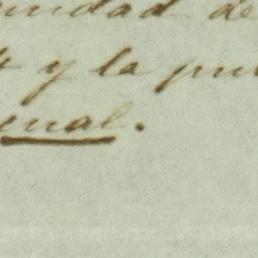 unidad de
y la pu
enal.